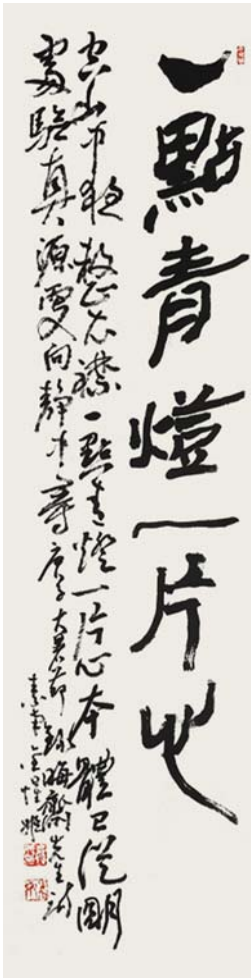 一點青燈一片心
空山中夜整冠襟一點青燈一片心本體已從明
處驗真源更向靜中尋庚子大暑節錄晦齋先生詩